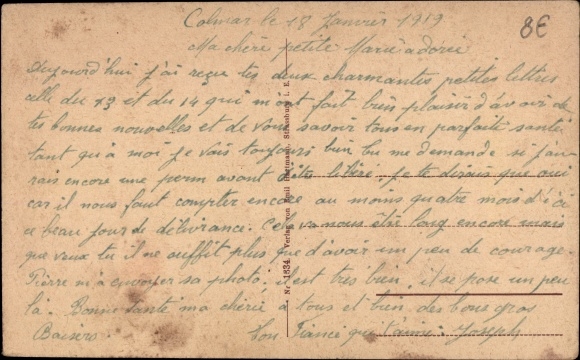 Colmar le 18 Janvier 1919
8€
Ma chère petite Marie adorée
Aujourd'hui j'ai reçue tes deux charmantes petites lettres
celle du 13 et du 14 qui m'ont fait bien plaisir d'avoir de
tes bonnes nouvelles et de vous savoir tous en parfaite santé
tant qu'à moi je vais toujours bien tu me demande si j'au
rais encore une perm avant d'être libéré je te dirais que oui
car il nous faut compter encore au moins quatre mois d'ici
ce beau jour de délivrance. Cela va nous être long encore mais
que veux tu il ne suffit plus que d'avoir un peu de courage.
Pierre m'a envoyer sa photo. il est très bien, il se pose un peu
là. Bonne santé ma chérie à tous et bien des bons gros
Baisers. Ton Fiancé qui t'aime. Joseph
Nr. 1834. Verlag von Emil Hartmann, Strassburg i. E.